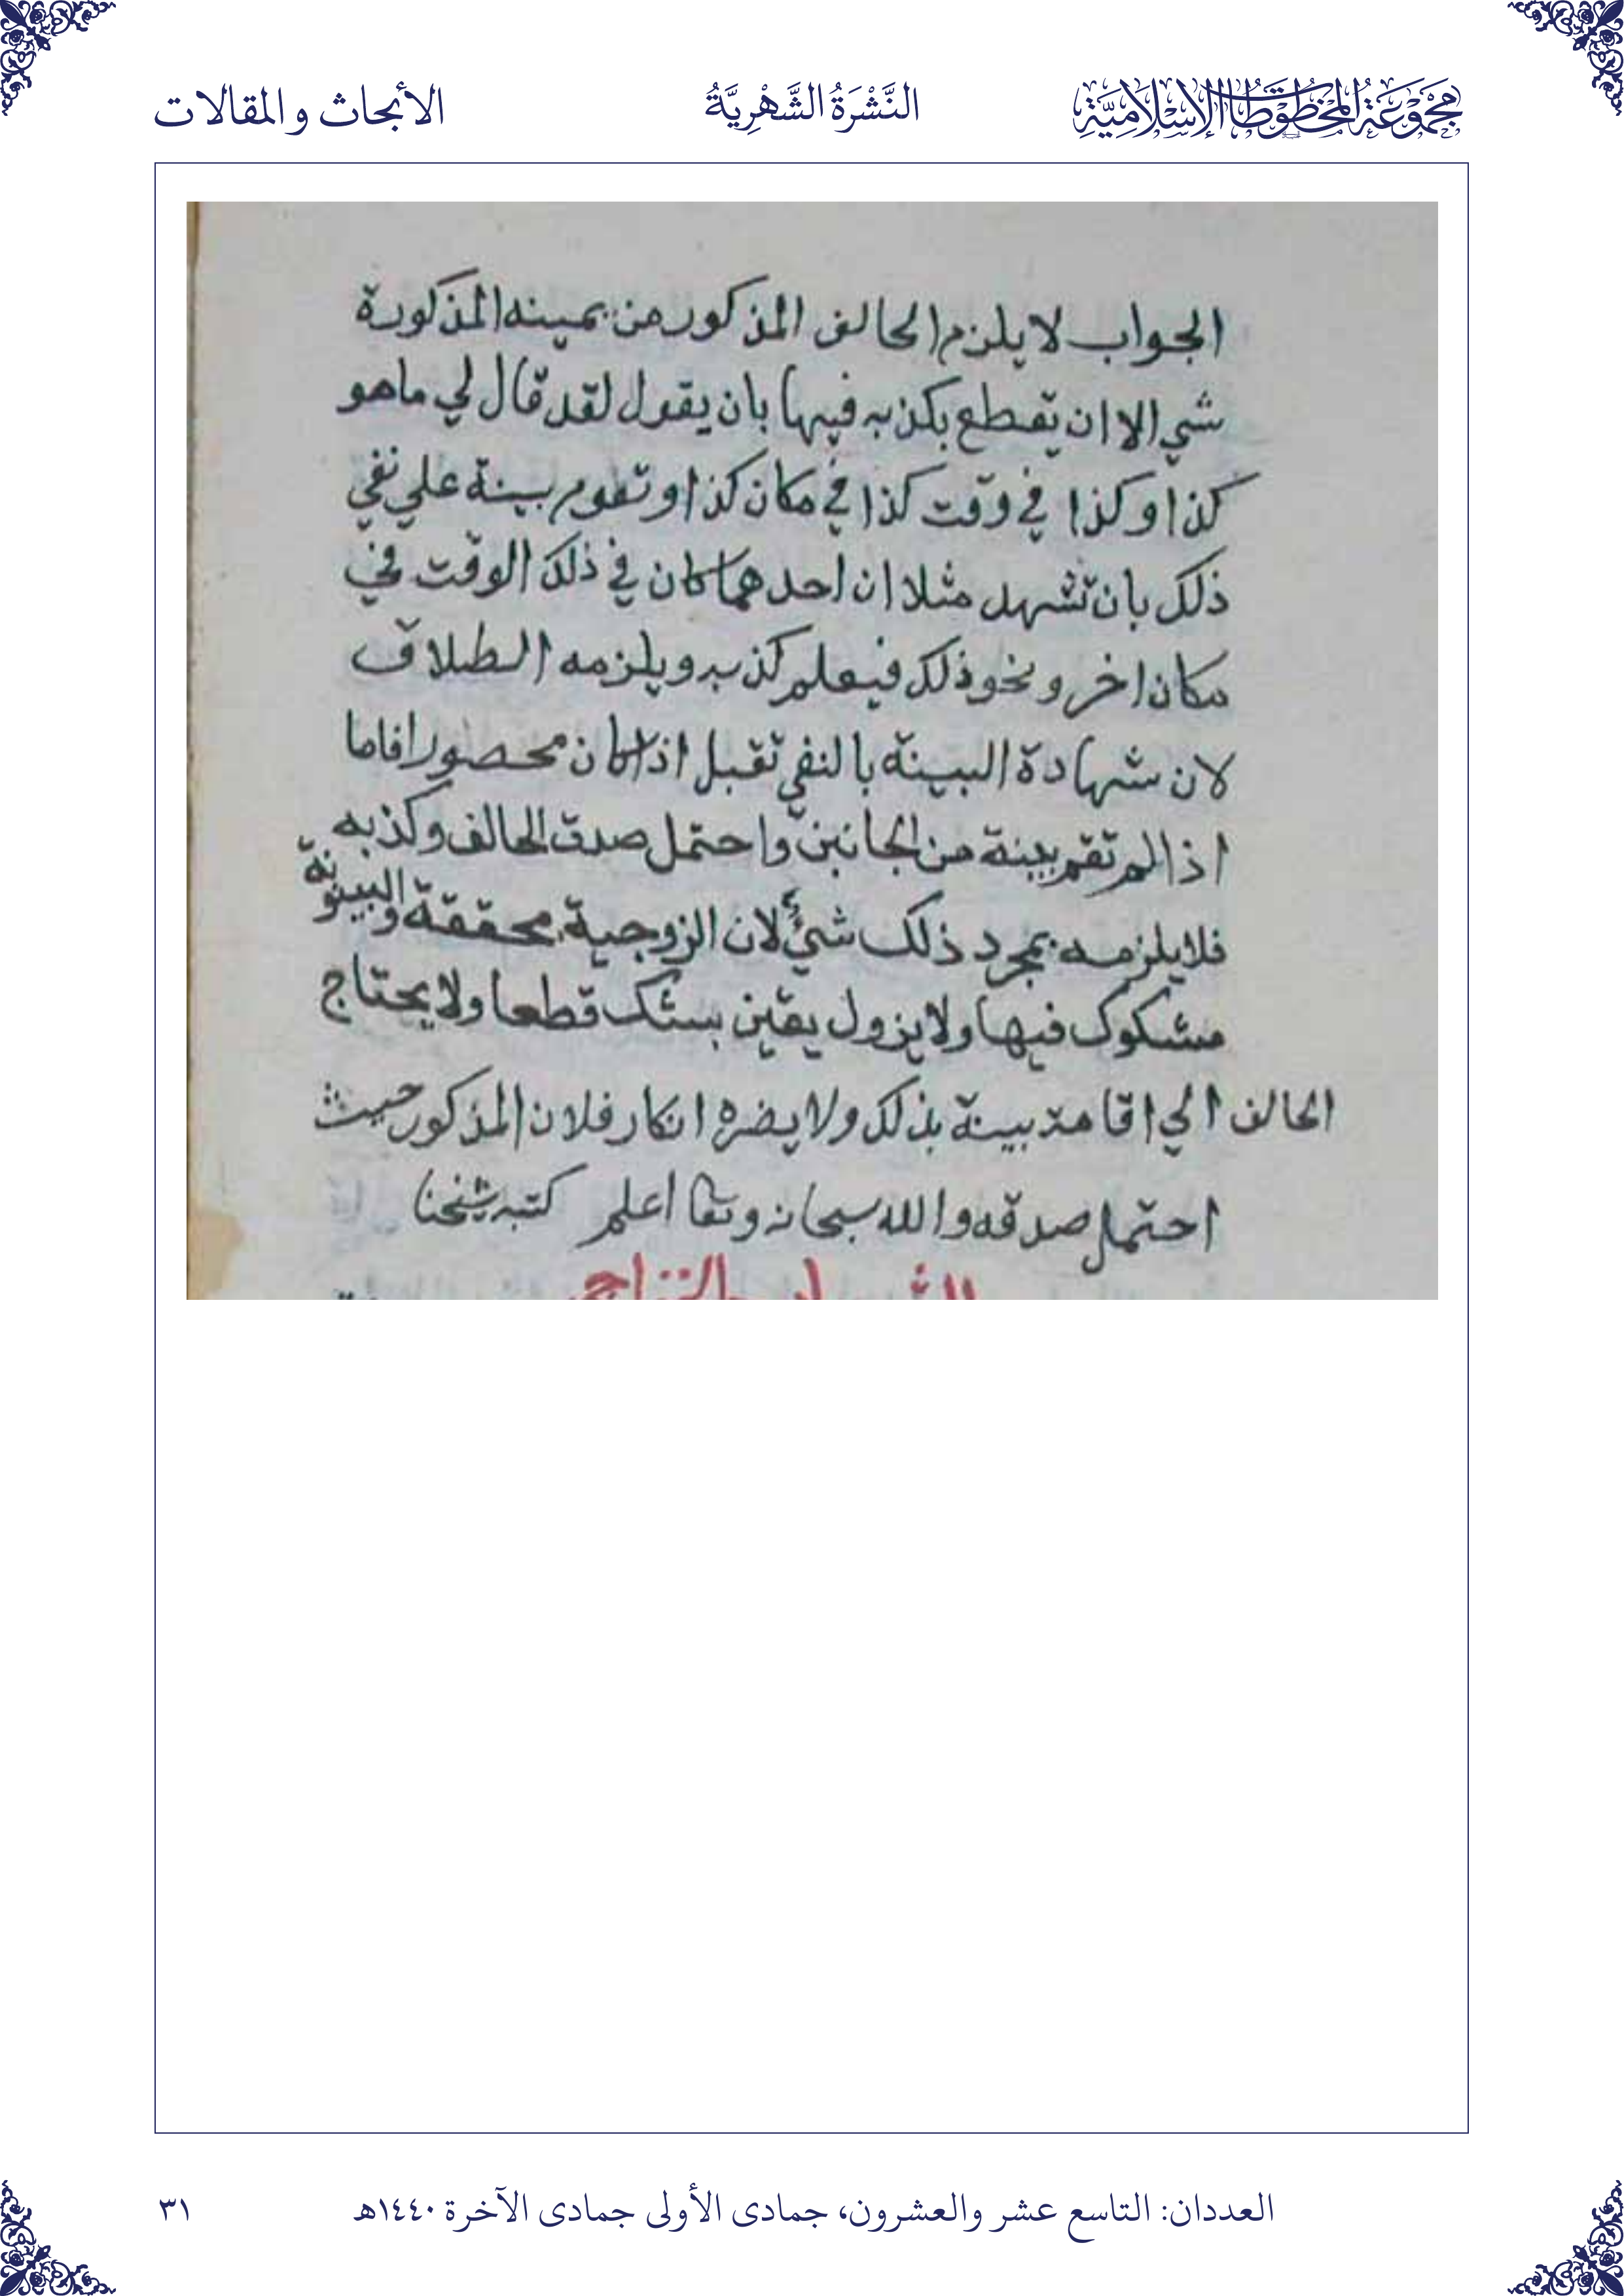 مجموعة المخطوطات الإسلامية
النَّشْرَةُ الشَّهْرِيَّةُ
الأبحاث والمقالات
الجواب لا يلزم الحالف المذكور من يمينه المذكورة
شي الا ان يقطع بكذبه فيها بان يقول لقد قال لي ما هو
كذا وكذا في وقت كذا في مكان كذا وتقوم بينة علي نفي
ذلك بان تشهد مثلا ان احدهما كان في ذلك الوقت في
مكان اخر ونحو ذلك فيعلم كذبه ويلزمه الطلاق
لان شهادة البينة بالنفي تقبل اذا كان محصورا فاما
اذا لم تقم بينة من الجانبين واحتمل صدق الحالف وكذبه
فلا يلزمه بمجرد ذلك شيئ لان الزوجية محققة والبينونة
مشكوك فيها ولا يزول يقين بشك قطعا ولا يحتاج
الحالف الي اقامة بينة بذلك ولا يضره انكار فلان المذكور حيث
احتمل صدقه والله سبحانه وتعا اعلم كتبه شيخنا
العددان: التاسع عشر والعشرون، جمادى الأولى جمادى الآخرة ١٤٤٠هـ
٣١